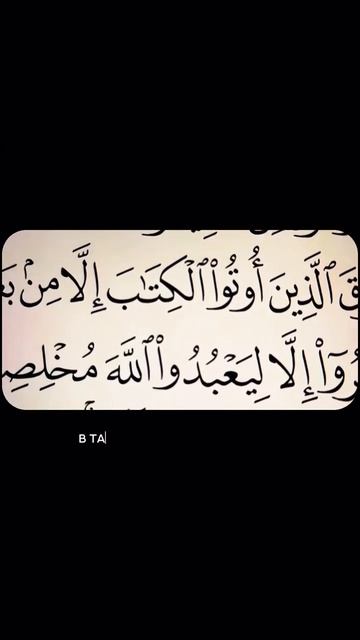 قَ ٱلَّذِينَ أُوتُوا۟ ٱلْكِتَـٰبَ إِلَّا مِنۢ بَعْ
رُوٓا۟ إِلَّا لِيَعْبُدُوا۟ ٱللَّهَ مُخْلِصِ
В ТА